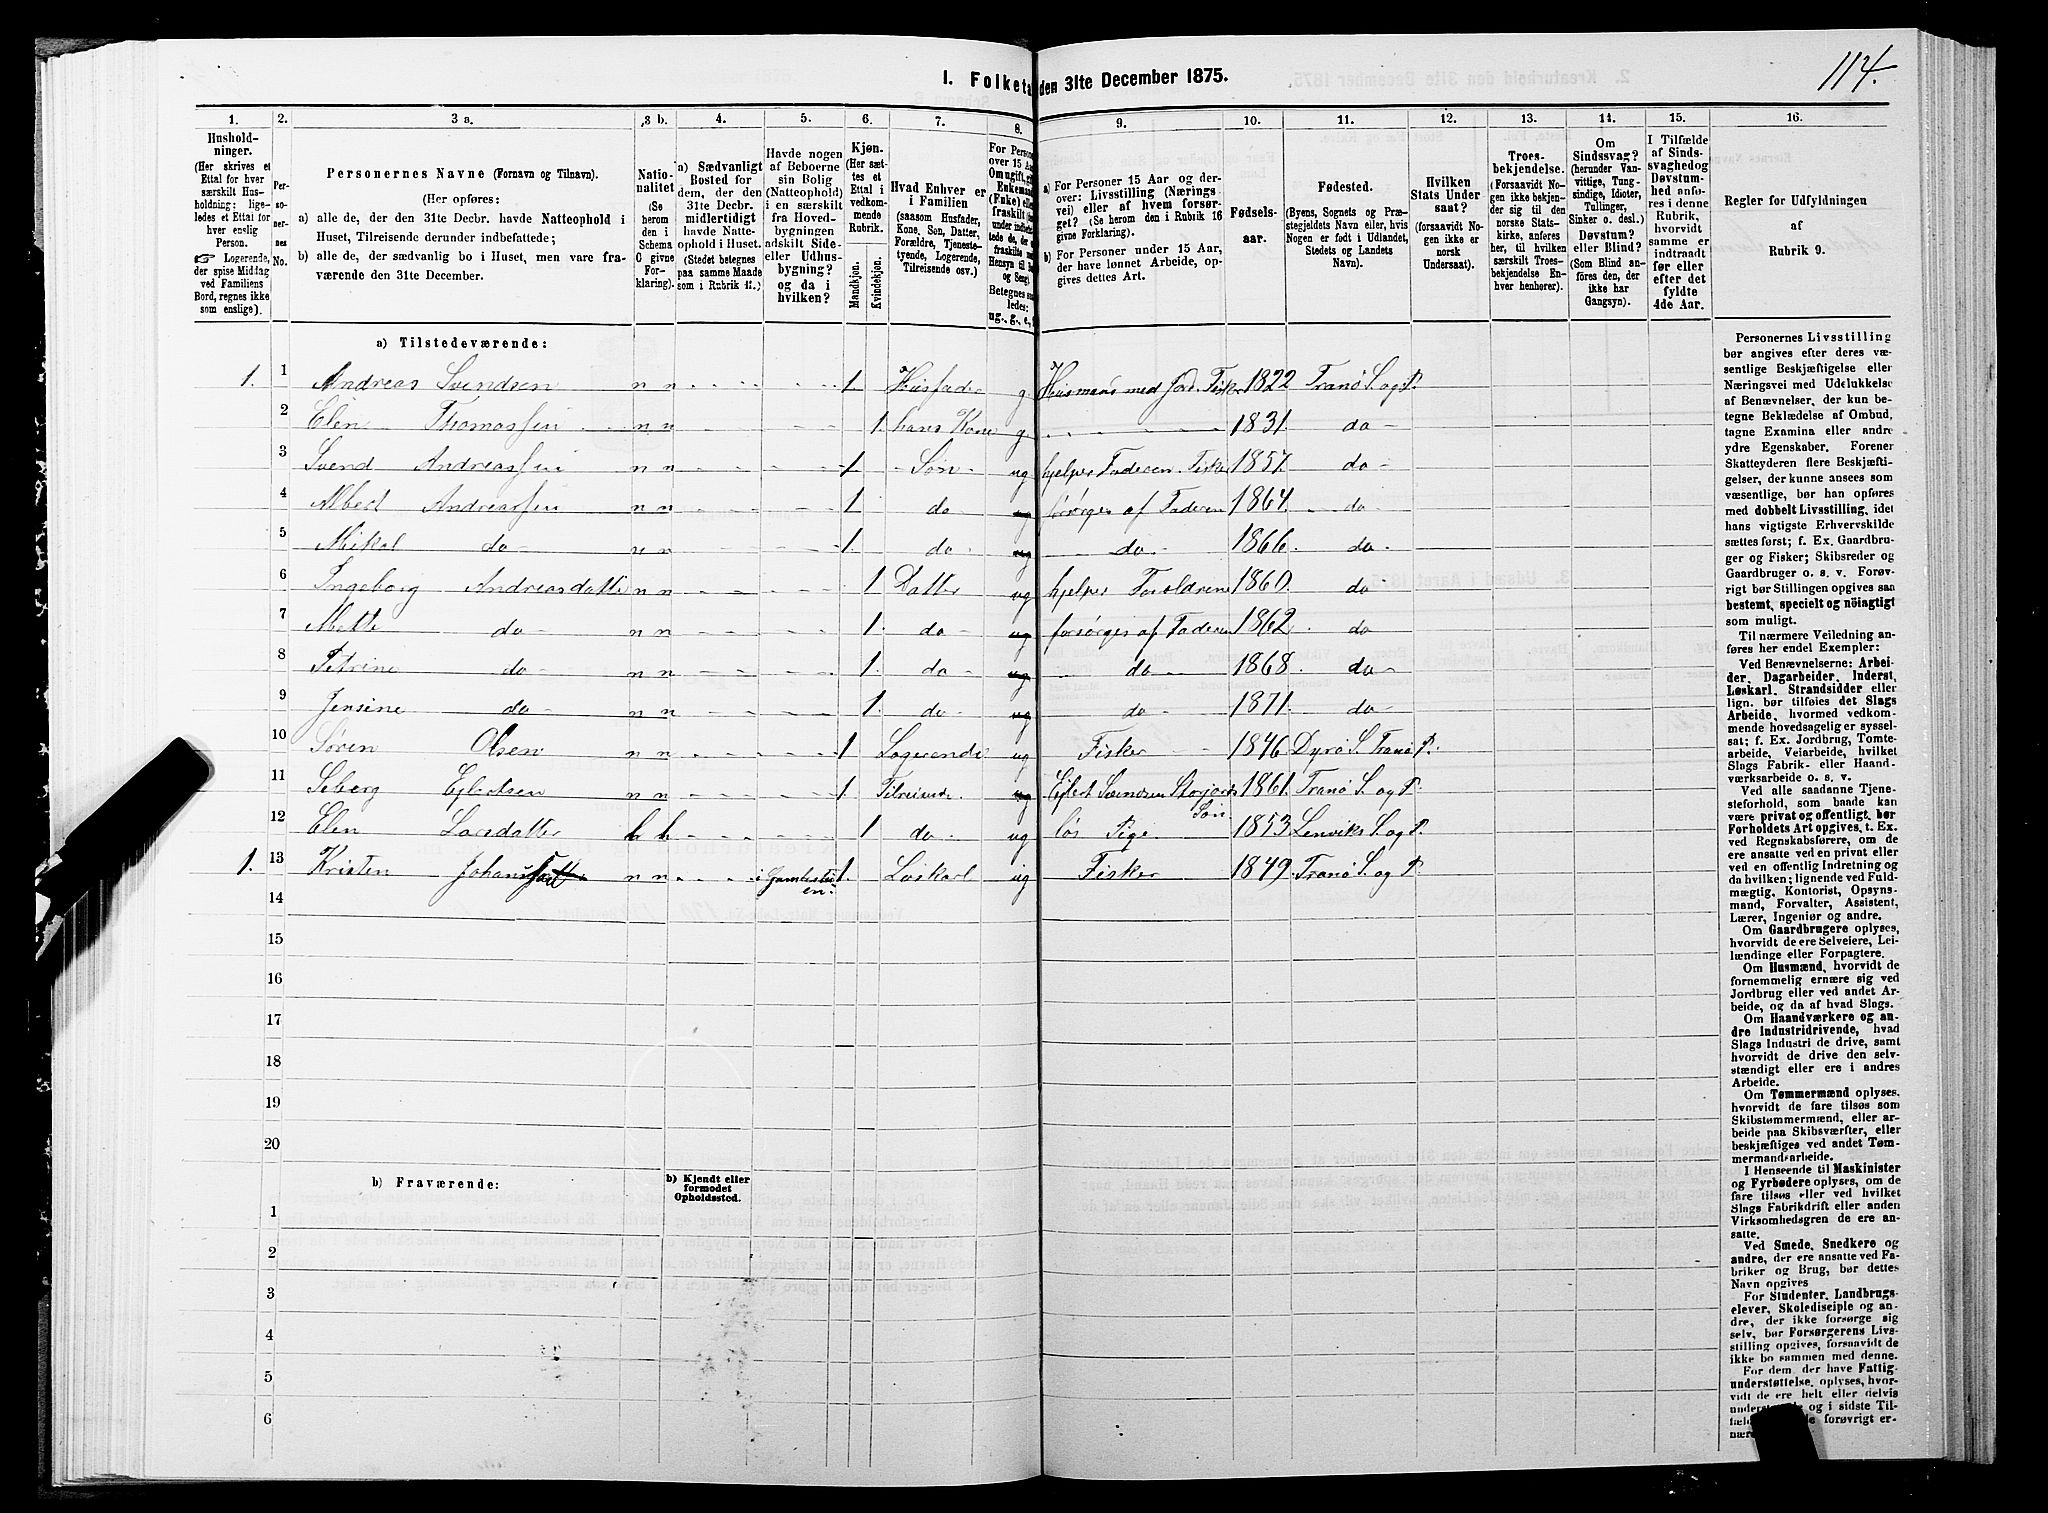 114.
I. Folketa den 31te December 1875.
1. 2. 3 a. 3 b. 4. 5. 6. 7. 8. 9. 10. 11. 12. 13. 14. 15. 16.
Husholdninger.
(Her skrives et
Ettal for hver
særskilt Husholdning;
ligeledes et Ettal for
hver enslig
Person.
Logerende,
der spise Middag
ved Familiens
Bord, regnes ikke
som enslige).
Personernes No.
Personernes Navne (Fornavn og Tilnavn).
(Her opføres:
a) alle de, der den 31te Decbr. havde Natteophold i
Huset, Tilreisende derunder indbefattede;
b) alle de, der sædvanlig bo i Huset, men vare fra-
værende den 31te December.
Nationalitet
(Se
herom
den i
Schema
C givne
Forklaring).
a) Sædvanligt
Bosted for
dem, der den
31te Decbr.
midlertidigt
havde Natte-
ophold i Huset.
(Stedet betegnes
paa samme Maade
som i Rubrik 11.)
Havde nogen
af Beboerne
sin Bolig
(Natteophold)
i en særskilt
fra Hoved-
bygningen
adskilt Side-
eller Udhus-
bygning?
og da i
hvilken?
Kjøn.
(Her sættes et
Ettal i
vedkommende
Rubrik.
Mandkjøn.
Kvindekjøn.
Hvad Enhver er
i Familien
(saasom Husfader,
Kone, Søn, Datter,
Forældre, Tjeneste-
tyende, Logerende,
Tilreisende osv.)
a) For Personer 15 Aar og der-
over: Livsstilling (Nærings-
vei) eller af hvem forsør-
get? (Se herom den i Rubrik 16
givne Forklaring).
b) For Personer under 15 Aar,
der have lønnet Arbeide, op-
gives dettes Art.
Fødsels-
aar.
Fødested.
(Byens, Sognets og Præ-
stegjeldets Navn eller, hvis
Nogen er født i Udlandet,
Stedets og Landets
Navn).
Hvilken
Stats Under
saat?
(forsaavidt No-
gen ikke er
norsk
Undersaat).
Troes-
bekjendelse.
(Forsaavidt No-
gen ikke bekjen-
der sig til den
norske Stats-
kirke, anføres
her, til hvilken
særskilt Troes-
bekjendelse En-
hver henhører).
Om
Sindssvag?
(herunder Van-
vittige, Tung-
sindige, Idioter,
Tullinger,
Sinker o. desl.)
Døvstum?
eller Blind?
(Som Blind an-
føres den, der
ikke har
Gangsyn).
I Tilfælde
af Sinds-
svaghed og
Døvstum-
hed anfø-
res i denne
Rubrik,
hvorvidt
samme er
indtraadt
før eller
efter det
fyldte
4de Aar.
Regler for Udfyldningen
af
Rubrik 9.
a) Tilstedeværende:
1. 1 Andreas Svendsen n n 1. Husfader g Husmand med Jord. Fisker 1822 Tranø S. og P.
2 Elen Thomassen n n 1. hans Kone g 1831. do
3 Svend Andreassen n n 1 Søn ug hjelper Faderen Fisker 1857. do
4 Albert Andreassen n n 1 do ug forsørges af Faderen 1864. do
5 Mikal do n n 1. do ug do 1866. do
6 Ingeborg Andreasdatter n n 1 Datter ug hjelper Forældrene 1860. do
7 Mette do n n 1. do ug forsørges af Faderen 1862 do
8 Petrine do n n 1. do ug do 1868. do
9 Jensine do n n 1. do ug do 1871. do
10 Søren Olsen n n 1 Logerende ug Fisker 1846 Dyrø S. Tranø P.
11 Seberg Ejlertsen n n 1. Tilreisende ug Ejlert Svendsen Storjords Søn 1861. Tranø S. og P.
12 Elen Larsdatter h h 1 do ug løs Pige 1853 Lenviks S. og P.
1. 13 Kristen Johan n n 1. Løskarl ug Fisker 1849. Tranø S. og P.
14
15
16
17
18
19
20
b) Fraværende: b) Kjendt eller
formodet
Opholdssted.
1
2
3
4
5
6
Personernes Livsstilling
bør angives efter deres væ-
sentlige Beskjæftigelse eller
Næringsvei med Udelukkelse
af Benævnelser, der kun be-
tegne Beklædelse af Ombud,
tagne Examina eller andre
ydre Egenskaber. Forener
Skatteyderen flere Beskjæfti-
gelser, der kunne ansees som
væsentlige, bør han opføres
med dobbelt Livsstilling, idet
hans vigtigste Erhvervskilde
sættes først; f. Ex. Gaardbru-
ger og Fisker; Skibsreder og
Gaardbruger o. s. v. Forøv-
rigt bør Stillingen opgives saa
bestemt, specielt og nöiagtigt
som muligt.
Til nærmere Veiledning an-
føres her endel Exempler:
Ved Benævnelserne: Arbei-
der, Dagarbeider, Inderst,
Løskarl, Strandsidder eller
lign. bør tilføies det Slags
Arbeide, hvormed vedkom-
mende hovedsagelig er syssel-
sat; f. Ex. Jordbrug, Tomte-
arbeide, Veiarbeide, hvilket
Slags Fabrik- eller Haand-
værksarbeide o. s. v.
Ved alle saadanne Tjene-
steforhold, som baade kan
være privat og offentlig, bør
Forholdets Art opgives, t. Ex.
ved Regnskabsførere, om de
ere ansatte ved en privat eller
ved en offentlig Indretning og
da hvilken; lignende ved Fuld-
mægtig, Kontorist, Opsyns-
mand, Forvalter, Assistent,
Lærer, Ingeniør og andre.
Om Gaardbrugere oplyses,
hvorvidt de ere Selveiere, Lei-
lændinge eller Forpagtere.
Om Husmænd, hvorvidt de
fornemmelig ernære sig ved
Jordbrug eller ved andet Ar-
beide, og da af hvad Slags.
Om Haandværkere og an-
dre Industridrivende, hvad
Slags Industri de drive, samt
hvorvidt de drive den selv-
stændigt eller ere i andres
Arbeide.
Om Tømmermænd oplyses,
hvorvidt de fare tilsøs som
Skibstømmermænd, eller ar-
beide paa Skibsværfter, eller
beskjæftiges ved andet Tøm-
mermandsarbeide.
I Henseende til Maskinister
og Fyrbødere oplyses, om de
fare tilsøs eller ved hvilket
Slags Fabrikdrift eller anden
Virksomhedsgren de ere an-
satte.
Ved Smede, Snedkere og
andre, der ere ansatte ved Fa-
briker og Brug, bør dettes
Navn opgives
For Studenter, Landbrugs-
elever, Skoledisciple og an-
dre, der ikke forsørge sig
selv, bør Forsørgerens Livs-
stilling opgives, forsaavidt de
ikke bo sammen med denne.
For dem, der have Fattig-
understøttelse, oplyses, hvor-
vidt de ere helt eller delvis
og i sidste Til-
forøvrigt er-